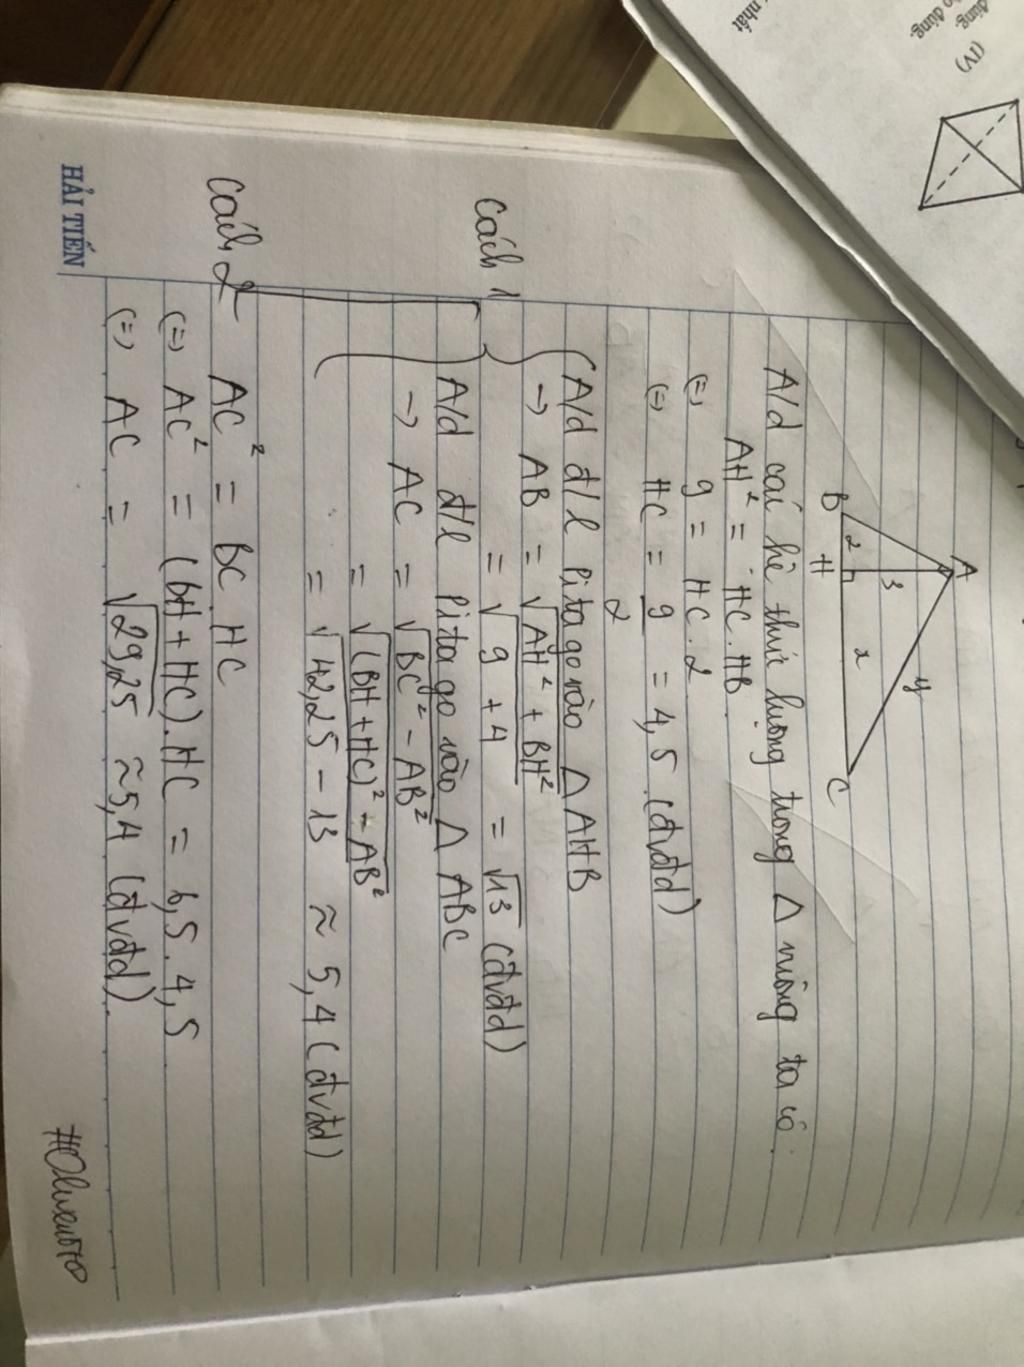 A
3
y
2
x
B
H
C
A/d các hệ thức lượng trong Δ vuông ta có:
AH² = HC.HB
(=) 9 = HC.2
(=) HC = 9/2 = 4,5 (đvđd)
Cách 1
A/d đ/l Pitago vào Δ AHB
→ AB = √AH² + BH²
= √9 + 4 = √13 (đvđd)
A/d đ/l Pitago vào Δ ABC
→ AC = √BC² - AB²
= √(BH + HC)² - AB²
= √42,25 - 13 ≈ 5,4 (đvđd)
Cách 2
AC² = BC.HC
(=) AC² = (BH + HC).HC = 6,5.4,5
(=) AC = √29,25 ≈ 5,4 (đvđd).
HẢI TIẾN
(IV)
nhất